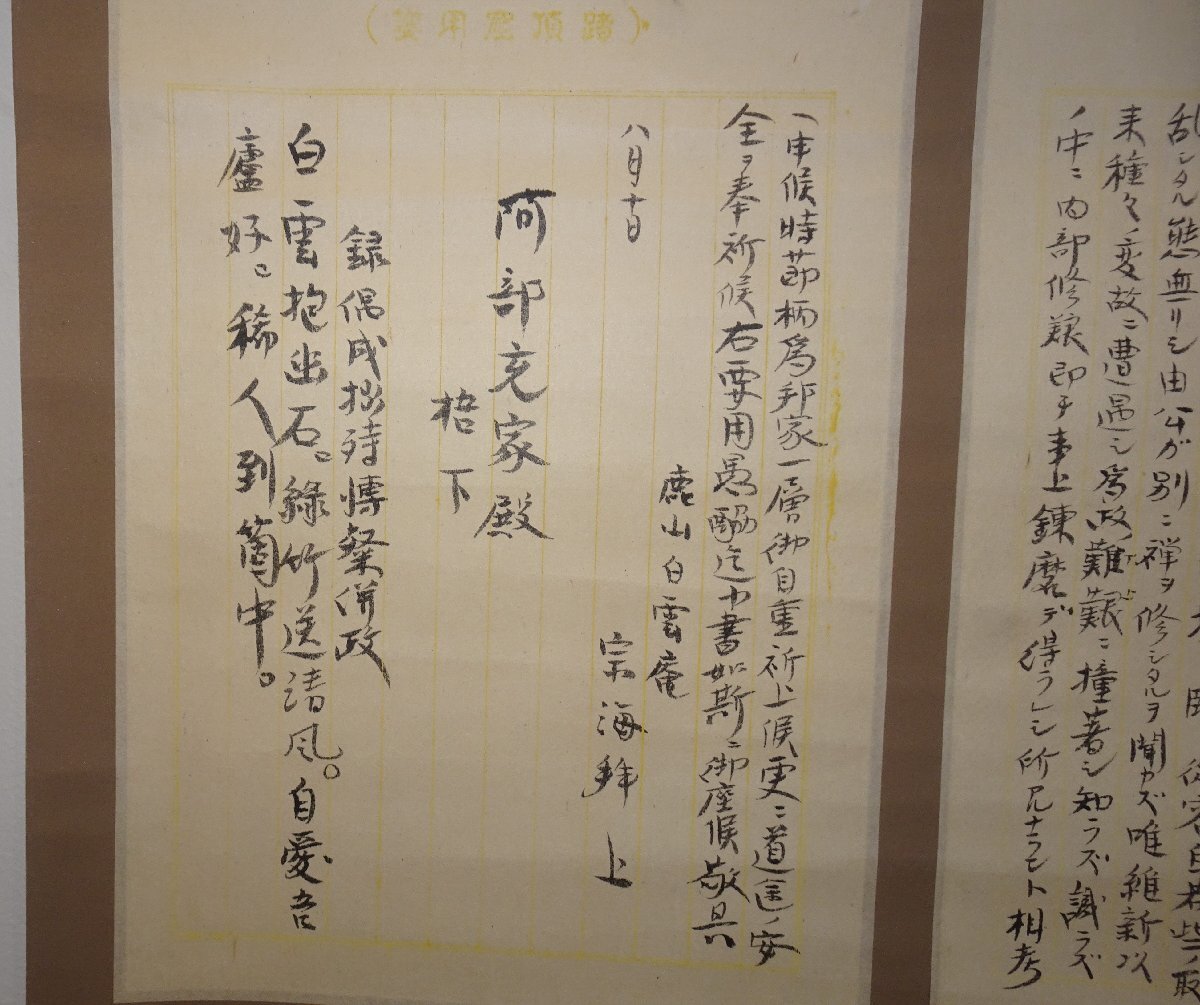 乱シタル態無リシ由公ガ別ニ禅ヲ修シタルヲ聞カズ唯維新以
来種々ノ変故ニ遭遇シ為政難艱ニ撞著シ知ラズ識ラズ
ノ中ニ内部修養即チ事上錬磨デ得ラレシ所尺ナラント相考
申候時節柄為邦家一層御自重祈上候更ニ道途ノ安
全ヲ奉祈候右要用愚酬迄申書如斯ニ御座候敬具
鹿山白雲庵
宗海拝上
八月十日
阿部充家殿
梧下
録偶成拙詩博粲併政
白雲抱幽石。緑竹送清風。自愛吾
廬好。稀人到箇中。
(踏頂庵用箋)